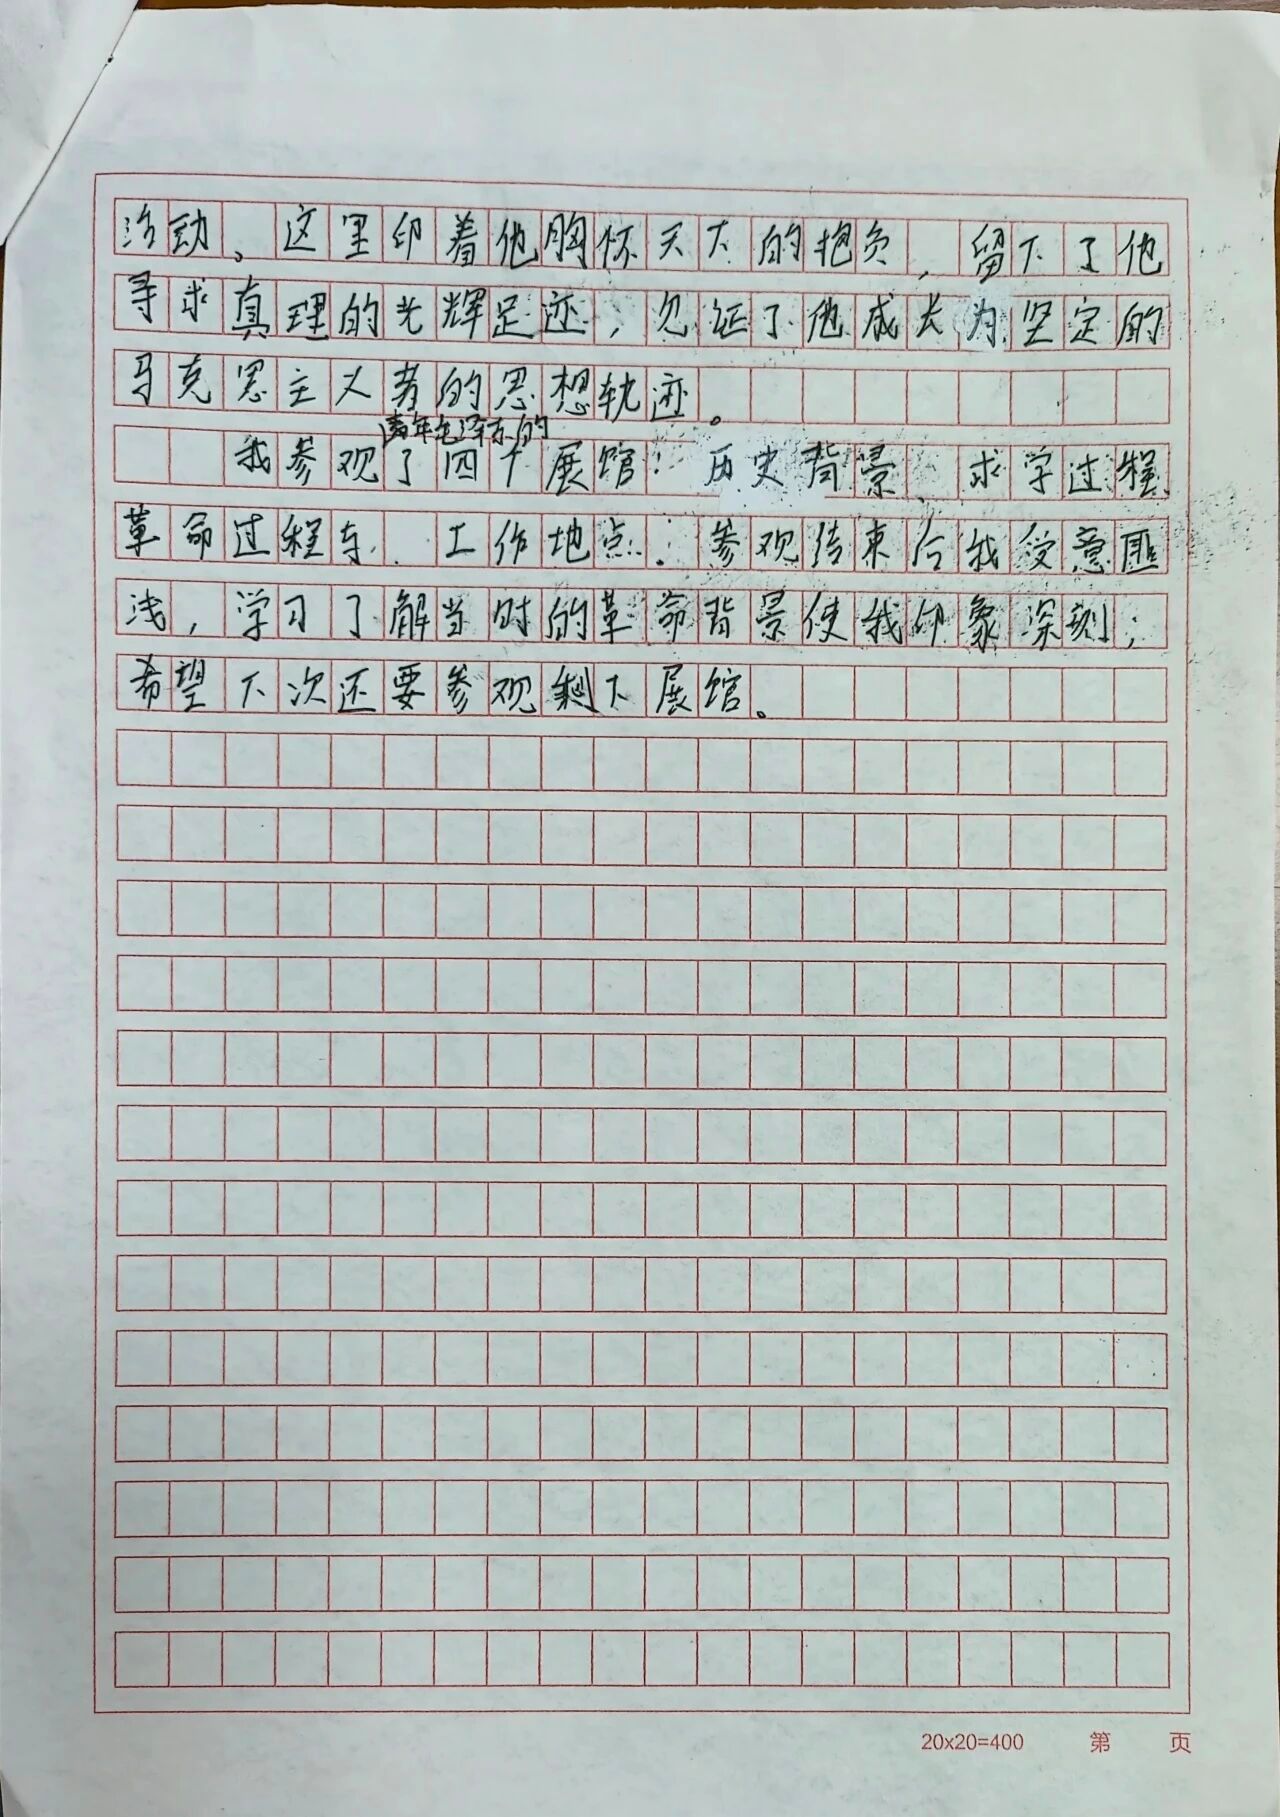 活动。这里印着他胸怀天下的抱负，留下了他
寻求真理的光辉足迹；见证了他成长为坚定的
马克思主义者的思想轨迹。
青年毛泽东的
我参观了四个展馆：历史背景、求学过程、
革命过程、工作地点。参观结束后我受意匪
浅，学习了解当时的革命背景使我印象深刻；
希望下次还要参观剩下展馆。
20x20=400 第 页